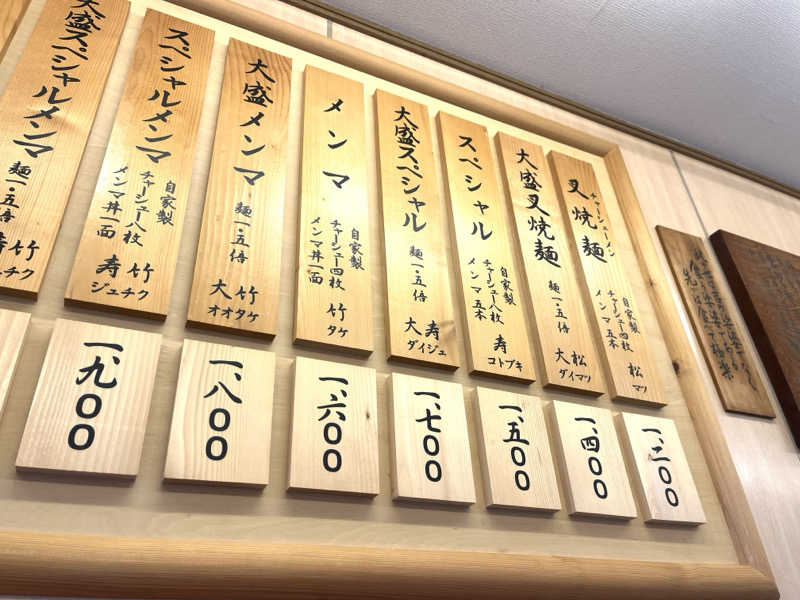 チャーシューメン
叉焼麺
自家製
チャーシュー四枚
メンマ五本
松
マツ
一、二〇〇
大盛叉焼麺
麺一・五倍
大松
ダイマツ
一、四〇〇
スペシャル
自家製
チャーシュー八枚
メンマ五本
寿
コトブキ
一、五〇〇
大盛スペシャル
麺一・五倍
大寿
ダイジュ
一、七〇〇
メンマ
自家製
チャーシュー四枚
メンマ丼一面
竹
タケ
一、六〇〇
大盛メンマ
麺一・五倍
大竹
オオタケ
一、八〇〇
スペシャルメンマ
自家製
チャーシュー八枚
メンマ丼一面
寿竹
ジュチク
一、九〇〇
大盛スペシャルメンマ
麺一・五倍
寿竹
チク